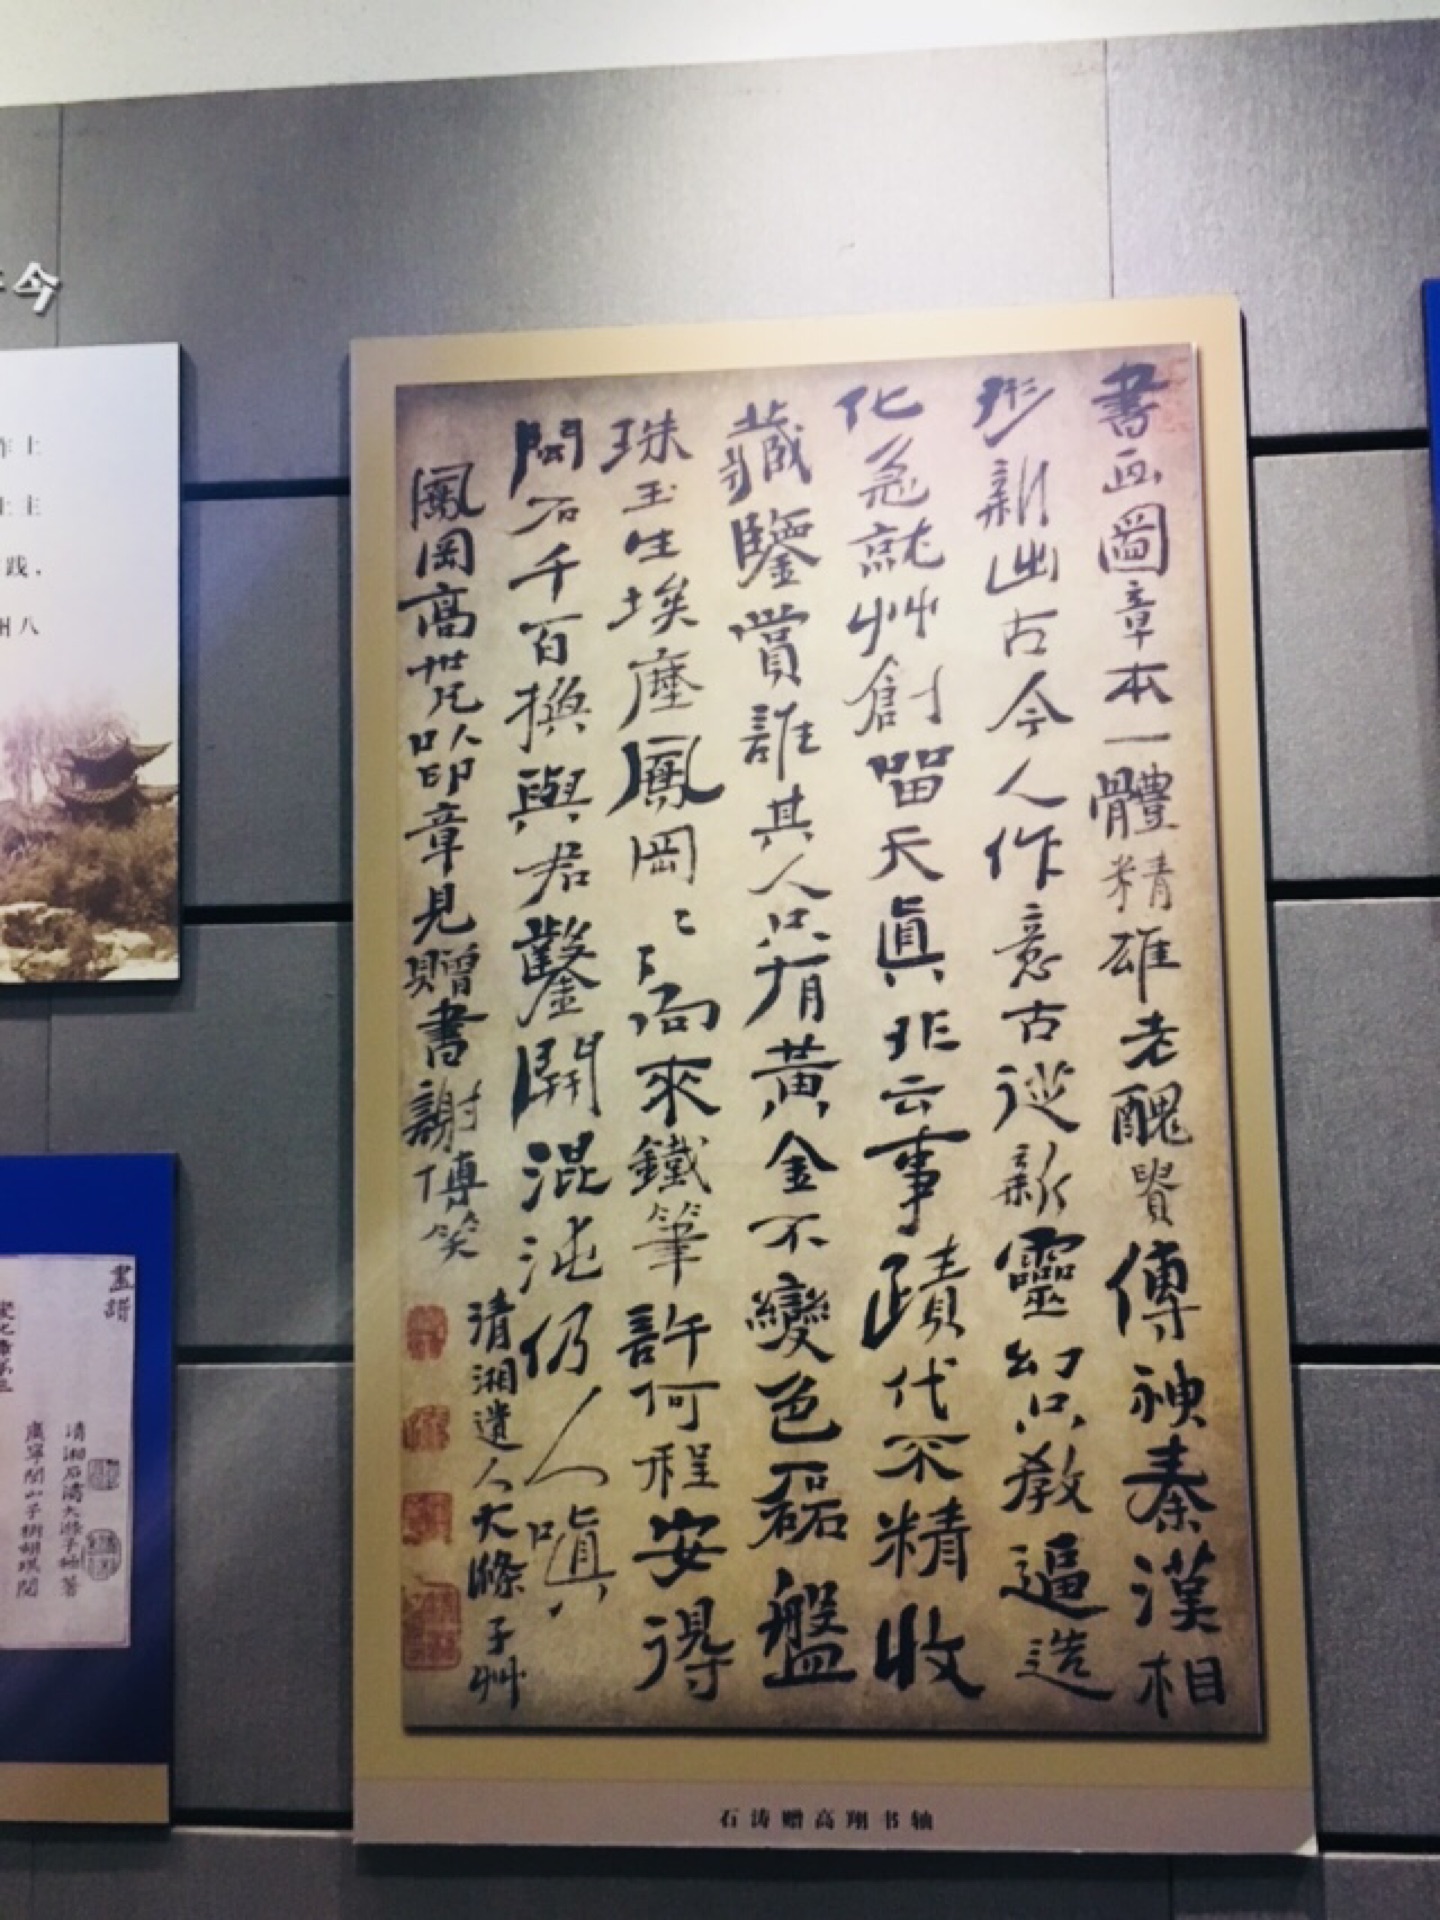 書画圖章本一體精雄老醜貴傳神秦漢相
形新出古今人作意古從新靈幻只教逼造
化急就艸創留天真非云事蹟代不精收
藏鑒賞誰其人只有黃金不變色磊盤
珠玉生埃塵鳳岡〻〻向來鐵筆許何程安得
閑石千百換與君鑿開混沌仍人嗔
鳳岡高世兄以印章見贈書謝博笑
清湘遺人大滌子艸
石涛赠高翔书轴
今
作上
上主
践，
州八
畫譜
清湘石濤大滌子